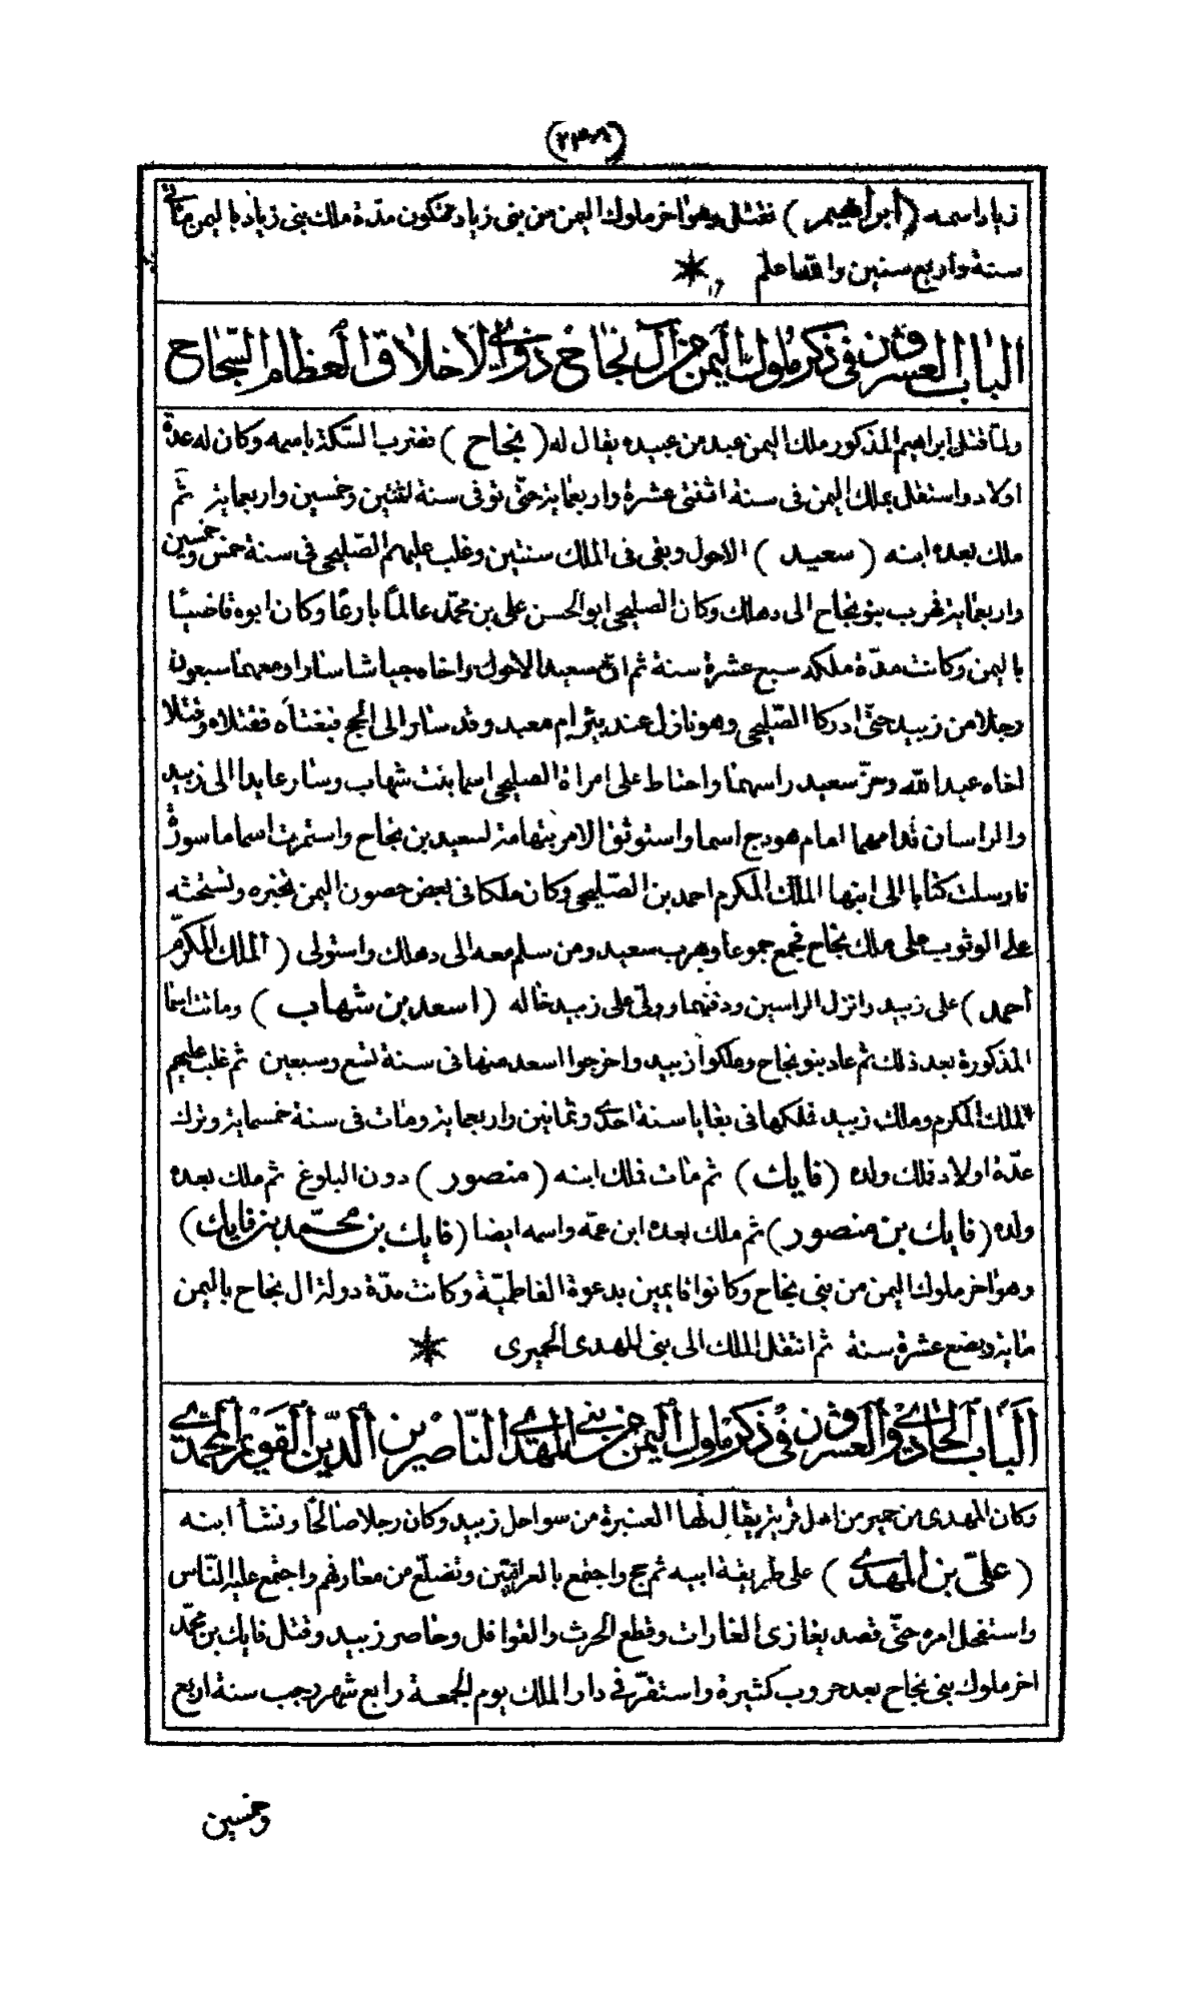 (٢٣٨)
زياد اسمه (ابراهيم) فقتل وهو اخر ملوك اليمن من بنى زياد فتكون مدّة ملك بنى زياد باليمن مائتى
سنة واربع سنين والله اعلم
الباب العشرون فى ذكر ملوك اليمن من آل نجاح ذوى الاخلاق العظام السّجاح
ولما قتل ابراهيم المذكور ملك اليمن عبد من عبيده يقال له (نجاح) فضرب السّكة باسمه وكان له عدة
اولاد واستقل بملك اليمن فى سنة اثنتى عشرة واربعماية حتّى توفى سنة اثنتين وخمسين واربعماية ثم
ملك بعده ابنه (سعيد) الاحول وبقى فى الملك سنتين وغلب عليهم الصّليحى فى سنة خمس وخمسين
واربعماية فهرب بنو نجاح الى دهلك وكان الصليحى ابو الحسن على بن محمّد عالمًا بارعًا وكان ابوه قاضيًا
باليمن وكانت مدّة ملكه سبع عشرة سنة ثم انّ سعيد الاحول واخاه جياشا سارا ومعهما سبعون
رجلا من زبيد حتّى ادركا الصّليحى وهو نازل عند بئر ام معبد وقد سار الى الحج فبغتاه فقتلاه وقتلا
اخاه عبد الله وحزّ سعيد راسهما واحتاط على امراة الصليحى اسما بنت شهاب وسار عايدا الى زبيد
والراسان قدامهما امام هودج اسما واستوثق الامر بتهامة لسعيد بن نجاح واستمرت اسما ماسورة
فارسلت كتابا الى ابنها الملك المكرم احمد بن الصّليحى وكان ملكا فى بعض حصون اليمن تخبره وتستحثه
على الوثوب على ملك نجاح فجمع جموعا وهرب سعيد ومن سلم معه الى دهلك واستولى (الملك المكرّم
أحمد) على زبيد وانزل الراسين ودفنهما وولّى على زبيد خاله (اسعد بن شهاب) وماتت اسما
المذكورة بعد ذلك ثم عاد بنو نجاح وملكوا زبيد واخرجوا اسعد منها فى سنة تسع وسبعين ثم غلب عليهم
الملك المكرم وملك زبيد فلكها فى بقايا سنة احدى وثمانين واربعماية ومات فى سنة خمسماية وترك
عدّة اولاد فلك ولده (فايك) ثم مات فلك ابنه (منصور) دون البلوغ ثم ملك بعده
ولده (فايك بن منصور) ثم ملك بعده ابن عمّه واسمه ايضا (فايك بن محمّد بن فايك)
وهو اخر ملوك اليمن من بنى نجاح وكانوا قايمين بدعوة الفاطميّة وكانت مدّة دولة ال نجاح باليمن
ماية وبضع عشرة سنة ثم انتقل الملك الى بنى المهدى الحميرى
الباب الحادى والعشرون فى ذكر ملوك اليمن من بنى المهدى النّاصرين الدّين القويم المحمّدى
وكان المهدى من حمير من اهل قرية يقال لها العنبرة من سواحل زبيد وكان رجلا صالحًا ونشأ ابنه
(علىّ بن المهدى) على طريقة ابيه ثم حج واجتمع بالعراقيّين وتضلّع من معارفهم واجتمع عليه النّاس
واستفحل امره حتّى قصد بغازى الغارات وقطع الحرث والقوافل وحاصر زبيد وقتل فايك بن محمّد
اخر ملوك بنى نجاح بعد حروب كثيرة واستقرّ فى دار الملك يوم الجمعة رابع شهر رجب سنة اربع
وخمسين